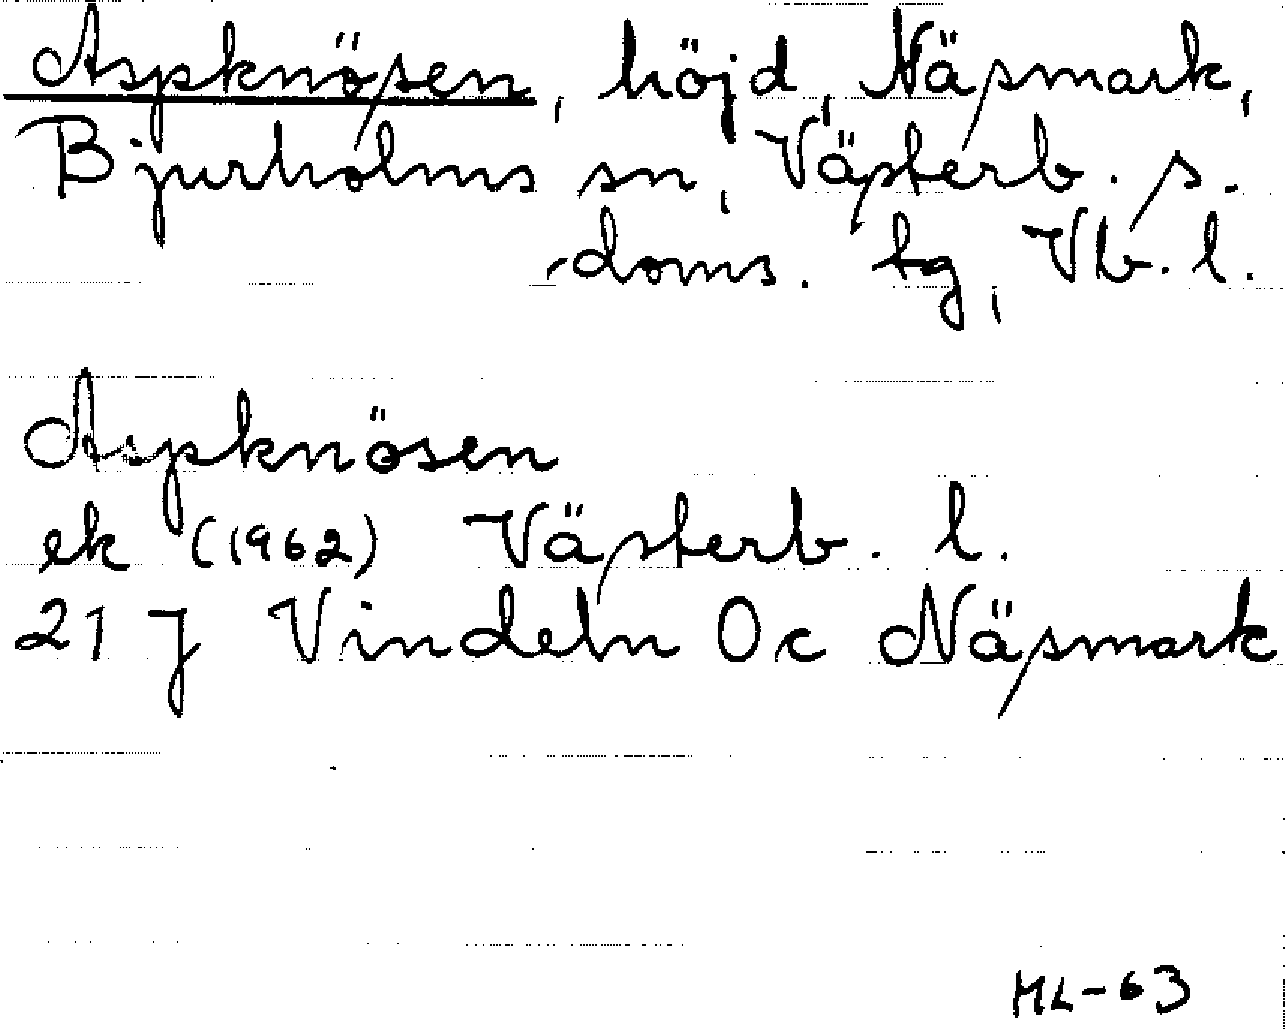 Aspknösen, höjd, Näsmark,
Bjurholms sn, Västerb. s.
doms. tg, Vb. l.
Aspknösen
ek (1962) Västerb. l.
21 J Vindeln 0c Näsmark
ML-63